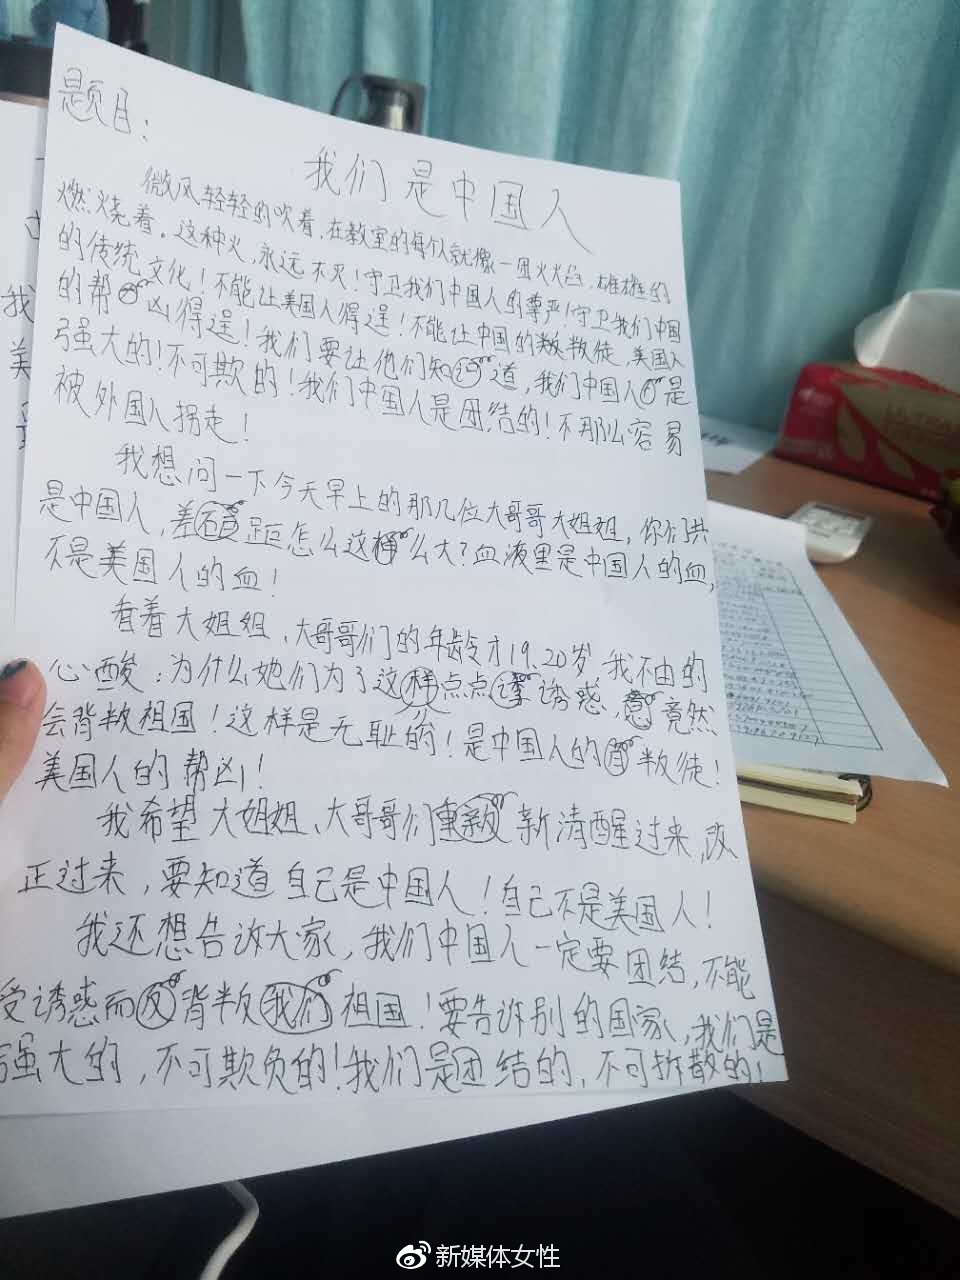 题目：
我们是中国人
微风轻轻的吹着，在教室的每个人就像一团火焰，雄雄的
燃烧着。这种火，永远不灭！守卫我们中国人的尊严！守卫我们中国
的传统文化！不能让美国人得逞！不能让中国的叛徒，美国人
的帮凶得逞！我们要让他们知道，我们中国人是
强大的！不可欺的！我们中国人是团结的！不那么容易
被外国人拐走！
我想问一下今天早上的那几位大哥哥大姐姐，你们共
是中国人，差距怎么这么大？血液里是中国人的血，
不是美国人的血！
看着大姐姐、大哥哥们的年龄才19、20岁，我不由的
心酸：为什么她们为了这点点诱惑，竟然
会背叛祖国！这样是无耻的！是中国人的叛徒！
美国人的帮凶！
我希望大姐姐、大哥哥们重新清醒过来，改
正过来，要知道自己是中国人！自己不是美国人！
我还想告诉大家，我们中国人一定要团结，不能
受诱惑而背叛祖国！要告诉别的国家，我们是
强大的，不可欺负的！我们是团结的，不可拆散的！
我
美
新媒体女性